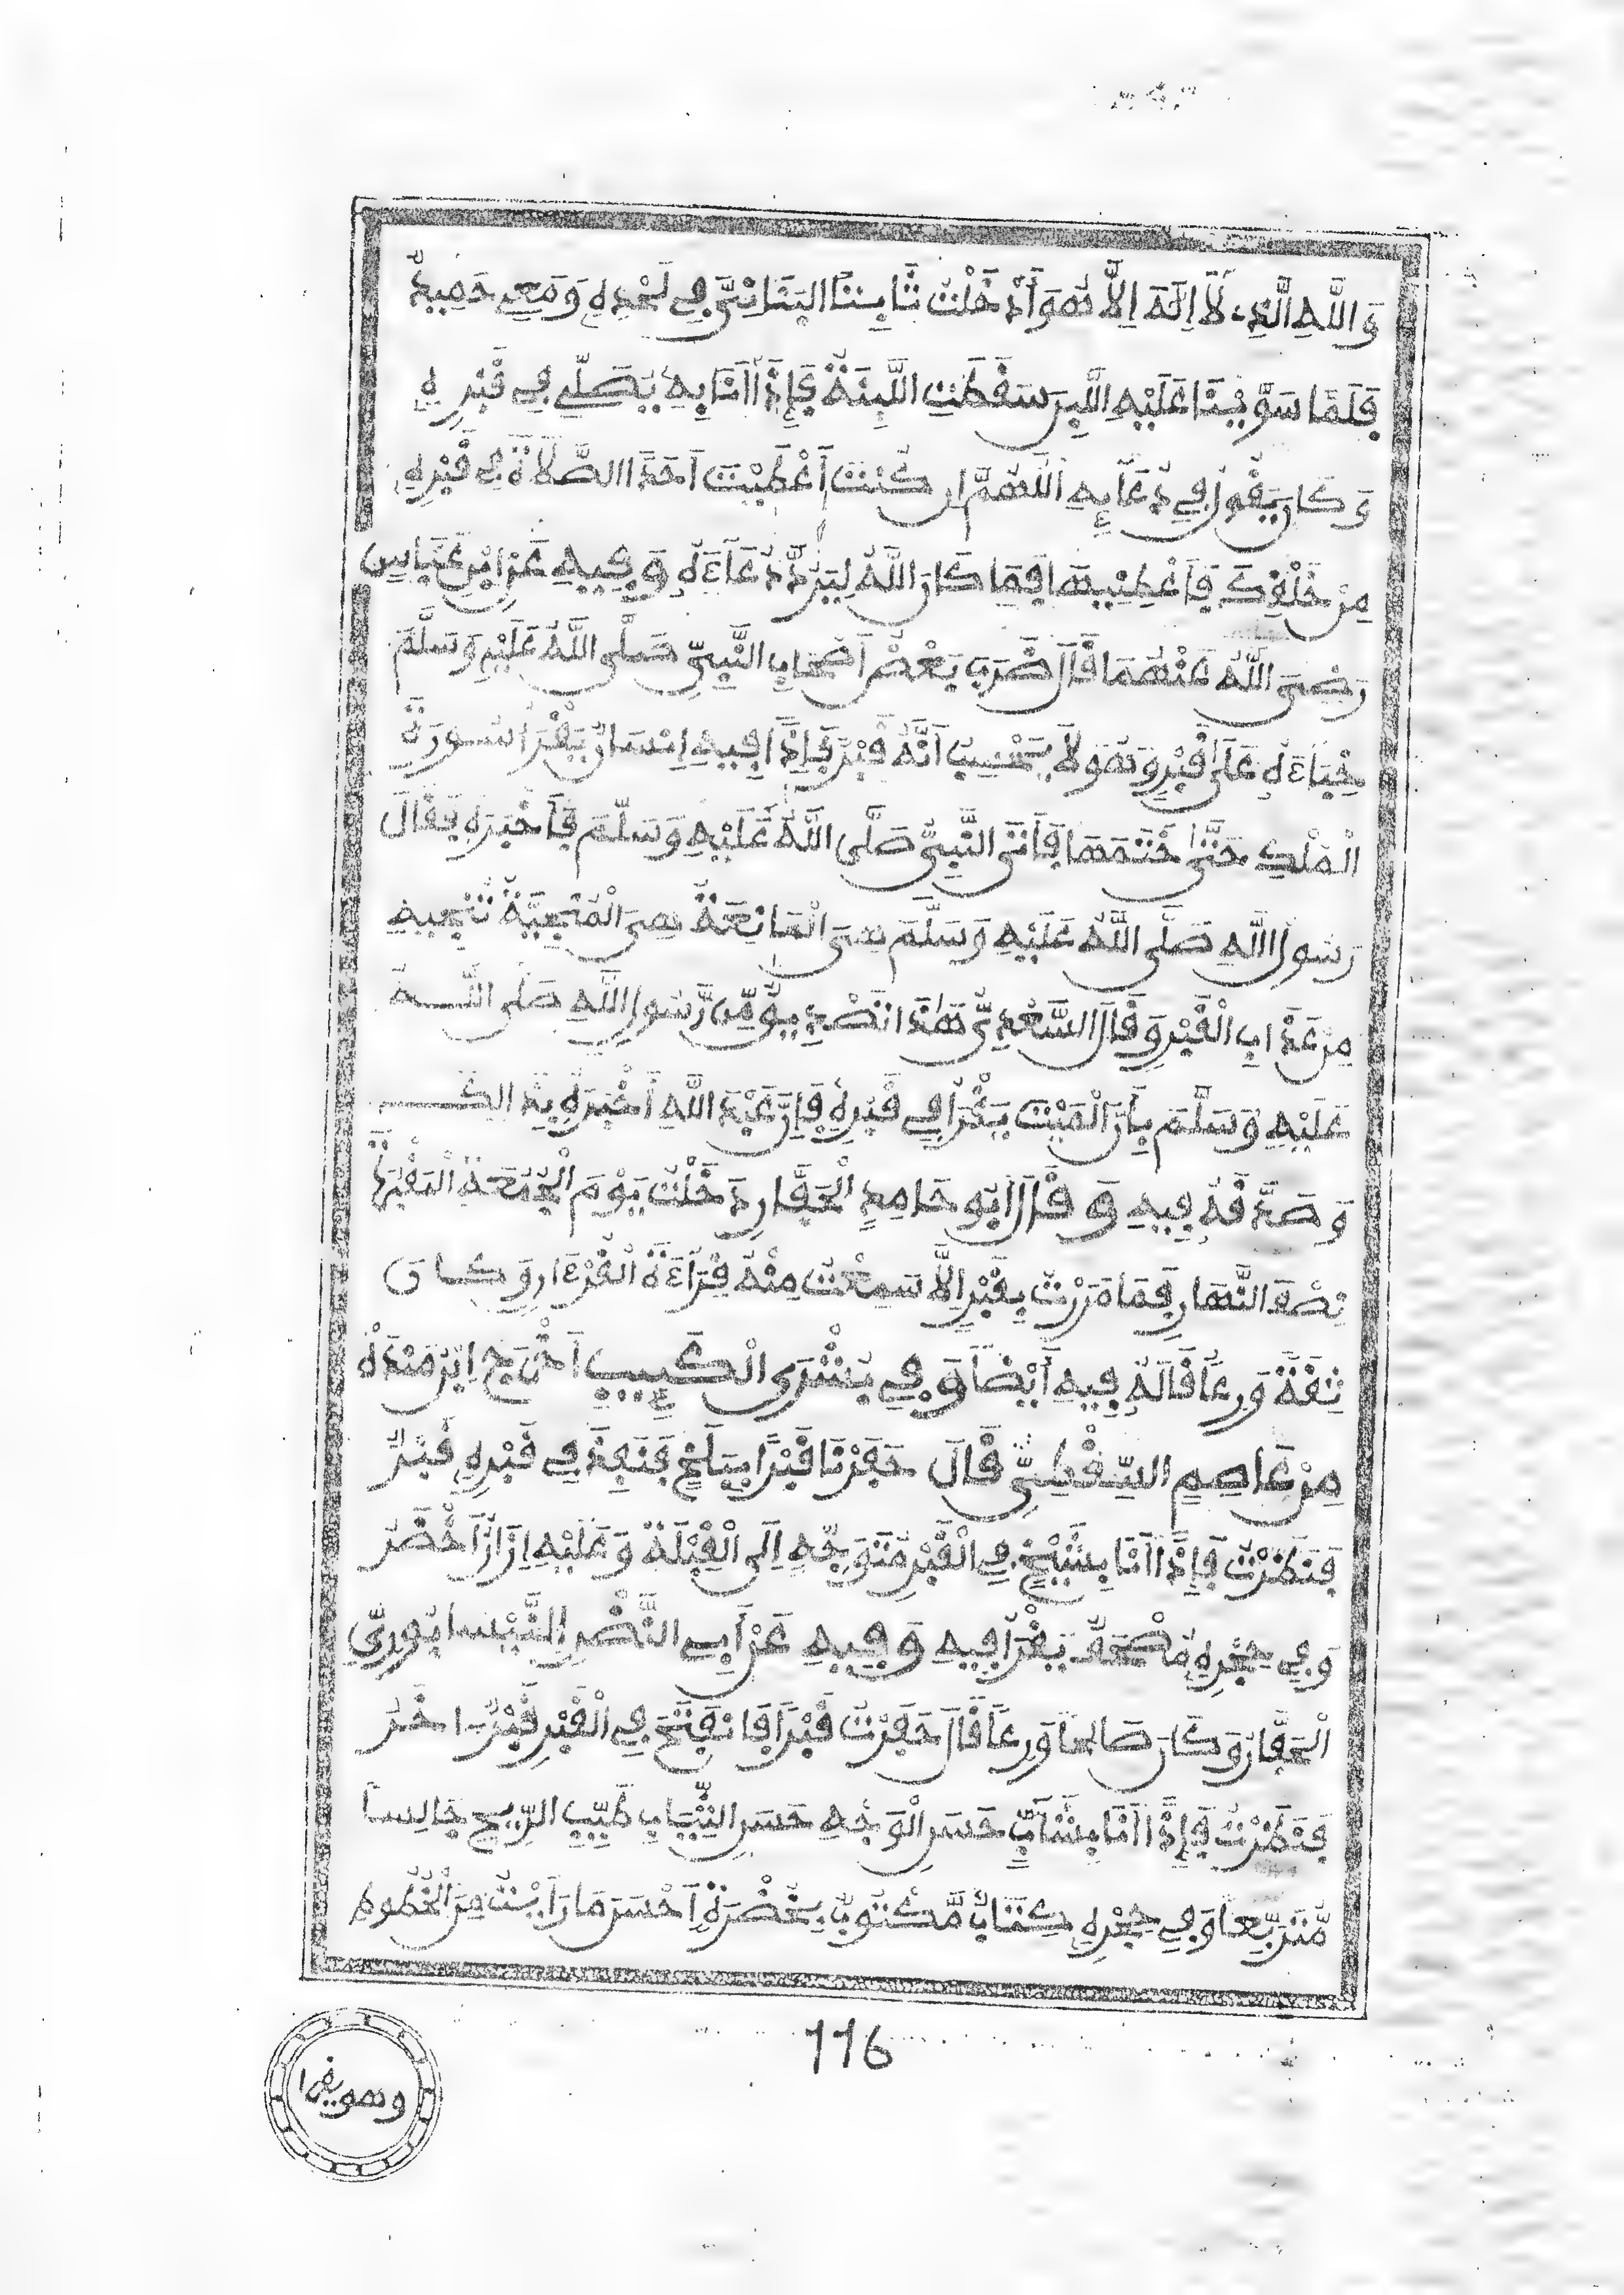 وَاللَّهِ الَّذِي لَا إِلَهَ إِلَّا هُوَ أَدْخَلْتُ ثَابِتًا الْبَنَانِيَّ فِي لَحْدِهِ وَمَعِي حَمِيدٌ
فَلَمَّا سَوَّيْنَا عَلَيْهِ اللَّبِنَ سَقَطَتِ اللَّبِنَةُ فَإِذَا أَنَا بِهِ يُصَلِّي فِي قَبْرِهِ
وَكَانَ يَقُولُ فِي دُعَآئِهِ اللَّهُمَّ إِن كُنْتَ أَعْطَيْتَ أَحَدًا الصَّلَاةَ فِي قَبْرِهِ
مِنْ خَلْقِكَ فَأَعْطِنِيهَا فَمَا كَانَ اللَّهُ لِيَرُدَّ دُعَآءَهُ وَفِيهِ عَنِ ابْنِ عَبَّاسٍ
رَضِيَ اللَّهُ عَنْهُمَا قَالَ ضَرَبَ بَعْضُ أَصْحَابِ النَّبِيِّ صَلَّى اللَّهُ عَلَيْهِ وَسَلَّمَ
خِبَآءَهُ عَلَى قَبْرٍ وَهُوَ لَا يَحْسِبُ أَنَّهُ قَبْرٌ فَإِذَا فِيهِ إِنْسَانٌ يَقْرَأُ سُورَةَ
الْمُلْكِ حَتَّى خَتَمَهَا فَأَتَى النَّبِيَّ صَلَّى اللَّهُ عَلَيْهِ وَسَلَّمَ فَأَخْبَرَهُ فَقَالَ
رَسُولُ اللَّهِ صَلَّى اللَّهُ عَلَيْهِ وَسَلَّمَ هِيَ الْمَانِعَةُ هِيَ الْمُنْجِيَةُ تُنْجِيهِ
مِنْ عَذَابِ الْقَبْرِ وَقَالَ السَّعْدِيُّ هَذَا تَصْدِيقٌ مِّن رَّسُولِ اللَّهِ صَلَّى اللَّهُ
عَلَيْهِ وَسَلَّمَ بِأَنَّ الْمَيِّتَ يَقْرَأُ فِي قَبْرِهِ فَإِنَّ عَبْدَ اللَّهِ أَخْبَرَهُ بِذَلِكَ
وَصَدَّقَهُ فِيهِ وَقَالَ أَبُو حَامِدٍ الْحَفَّارُ دَخَلْتُ يَوْمَ الْجُمُعَةِ الْمَقْبَرَةَ
نِصْفَ النَّهَارِ فَمَا مَرَرْتُ بِقَبْرٍ إِلَّا سَمِعْتُ مِنْهُ قِرَآءَةَ الْقُرْءَانِ وَكَانَ
ثِقَةً وَرِعًا قَالَهُ فِيهِ أَيْضًا وَفِي بُشْرَى الْكَئِيبِ أَخْرَجَ ابْنُ مَنْدَهْ
مِنْ عَاصِمٍ السَّقْطِيِّ قَالَ حَفَرْنَا قَبْرًا بِبَلْخٍ فَنَفَذَ فِي قَبْرِهِ قَبْرٌ
فَنَظَرْتُ فَإِذَا أَنَا بِشَيْخٍ فِي الْقَبْرِ مُتَوَجِّهٍ إِلَى الْقِبْلَةِ وَعَلَيْهِ إِزَارٌ أَخْضَرُ
وَفِي حِجْرِهِ مُصْحَفٌ يَقْرَأُ فِيهِ وَفِيهِ عَنْ أَبِي النَّضْرِ النَّيْسَابُورِيِّ
الْحَفَّارِ وَكَانَ صَالِحًا وَرِعًا قَالَ حَفَرْتُ قَبْرًا فَانْفَتَحَ فِي الْقَبْرِ قَبْرٌ ـاخَرُ
فَنَظَرْتُ فَإِذَا أَنَا بِشَآبٍّ حَسَنِ الْوَجْهِ حَسَنِ الثِّيَابِ طَيِّبِ الرِّيحِ جَالِسًا
مُّتَرَبِّعًا وَفِي حِجْرِهِ كِتَابٌ مَّكْتُوبٌ بِخُضْرَةٍ أَحْسَنَ مَا رَأَيْتُ مِنَ الْخُطُوطِ
116
وهو يقرأ